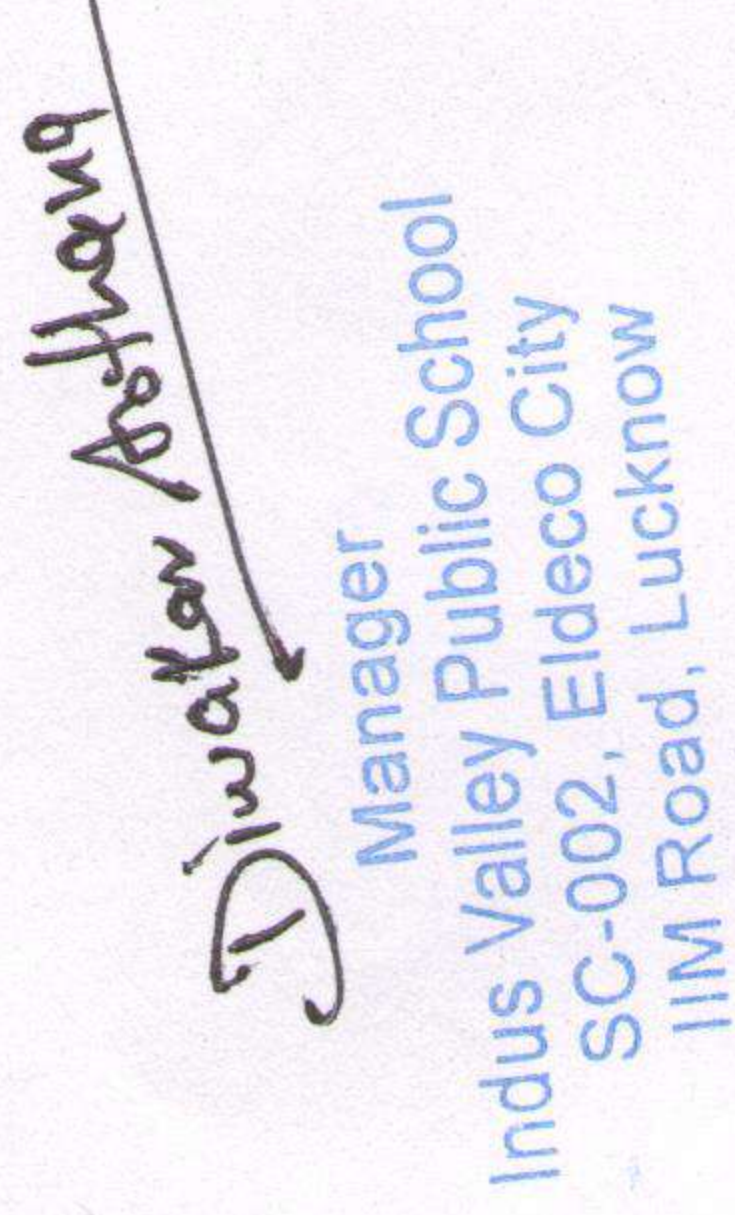 Diwakar Asthana
Manager
Indus Valley Public School
SC-002, Eldeco City
IIM Road, Lucknow